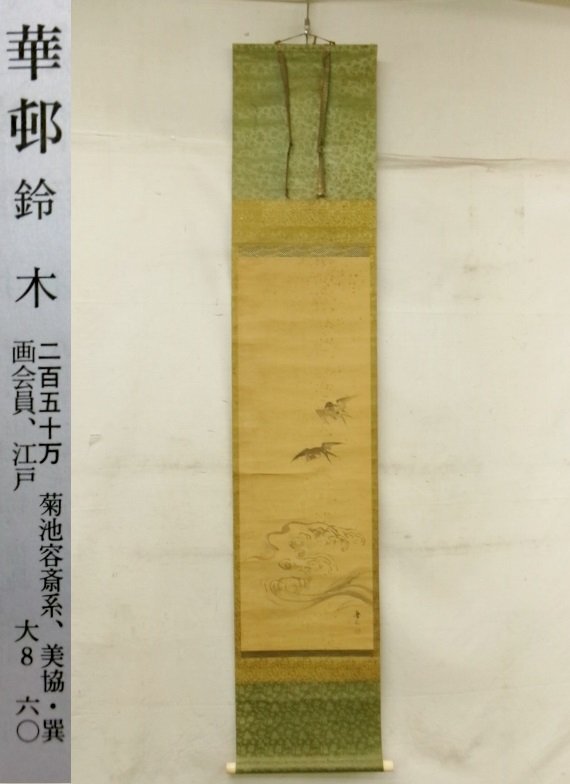 華邨 鈴木
二百五十万 菊池容斎系、美協・巽
画会員、江戸 大8 六〇